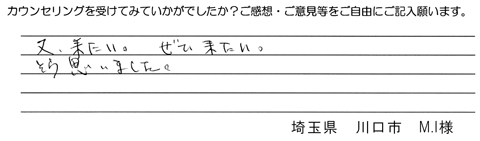 カウンセリングを受けてみていかがでしたか？ご感想・ご意見等をご自由にご記入願います。
又、来たい。 ぜひ来たい。
そう思いました。
埼玉県　川口市　M.I様